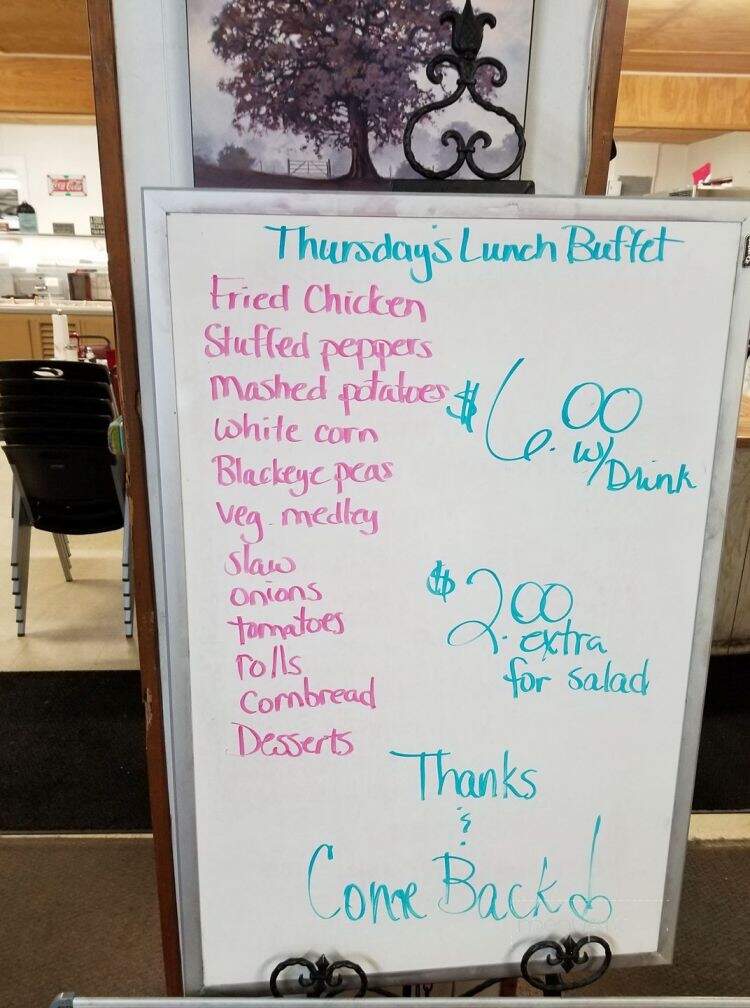 Coca-Cola
Thursday's Lunch Buffet
Fried Chicken
Stuffed peppers
Mashed potatoes
White corn
Blackeye peas
Veg. medley
Slaw
onions
tomatoes
rolls
Cornbread
Desserts
$6.00
w/Drink
$2.00
extra
for salad
Thanks
&
Come Back!